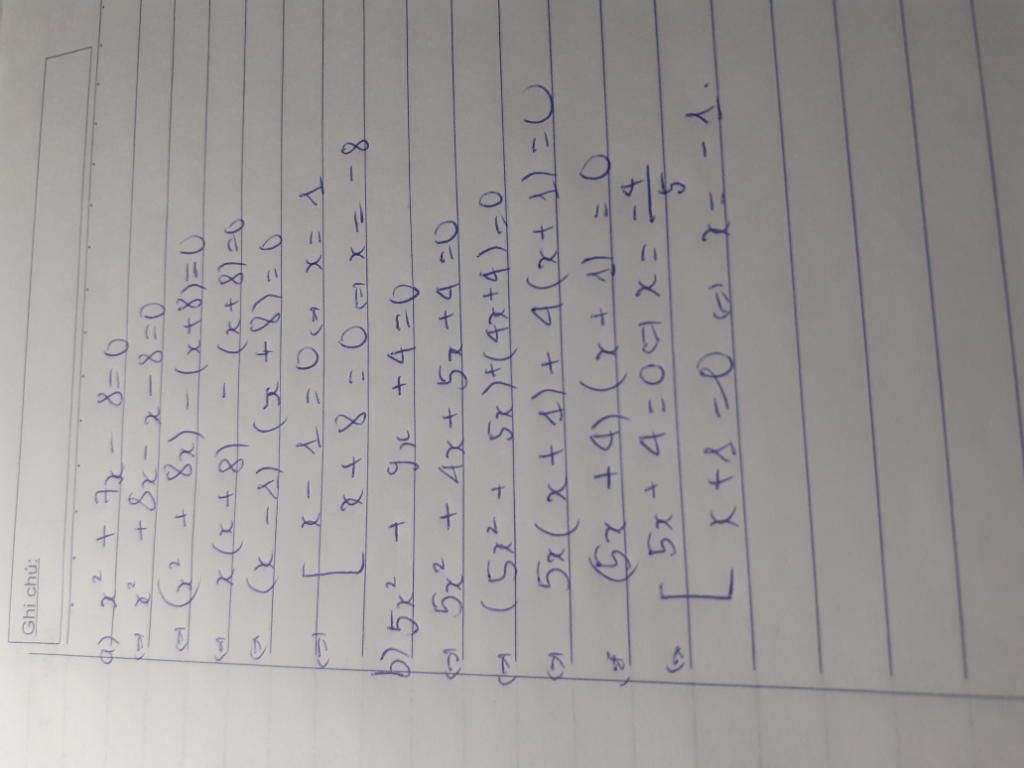 Ghi chú:
a) x² + 7x - 8=0
⇔ x² + 8x - x - 8=0
⇔ (x² + 8x) - (x+8)=0
⇔ x(x+8) - (x+8)=0
⇔ (x-1)(x+8)=0
⇔ [ x - 1 = 0 ⇔ x = 1
x + 8 = 0 ⇔ x = -8
b) 5x² + 9x + 4=0
⇔ 5x² + 4x + 5x + 4=0
⇔ (5x² + 5x)+(4x+4)=0
⇔ 5x(x+1) + 4(x+1)=0
⇔ (5x+4)(x+1)=0
⇔ [ 5x + 4 = 0 ⇔ x = -4/5
x+1=0 ⇔ x = -1.